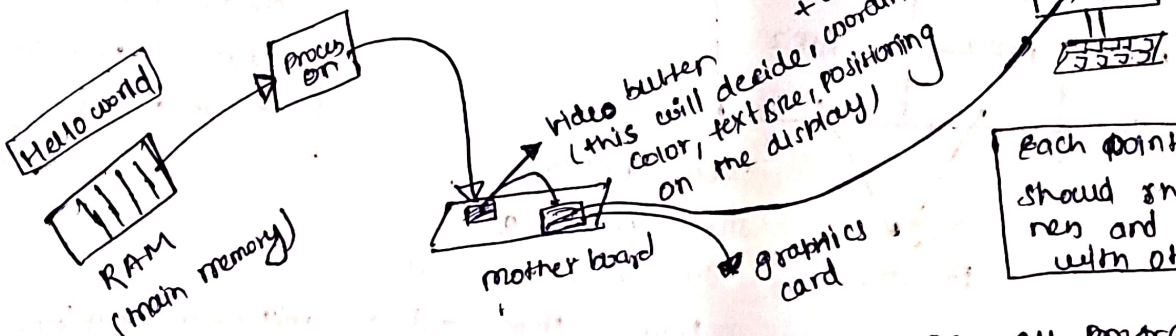 Hello world
RAM
(main memory)
Proces
or
video buffer
(this will decide,
color, text size, positioning
on the display)
mother board
graphics
card
Each point
should
and
with